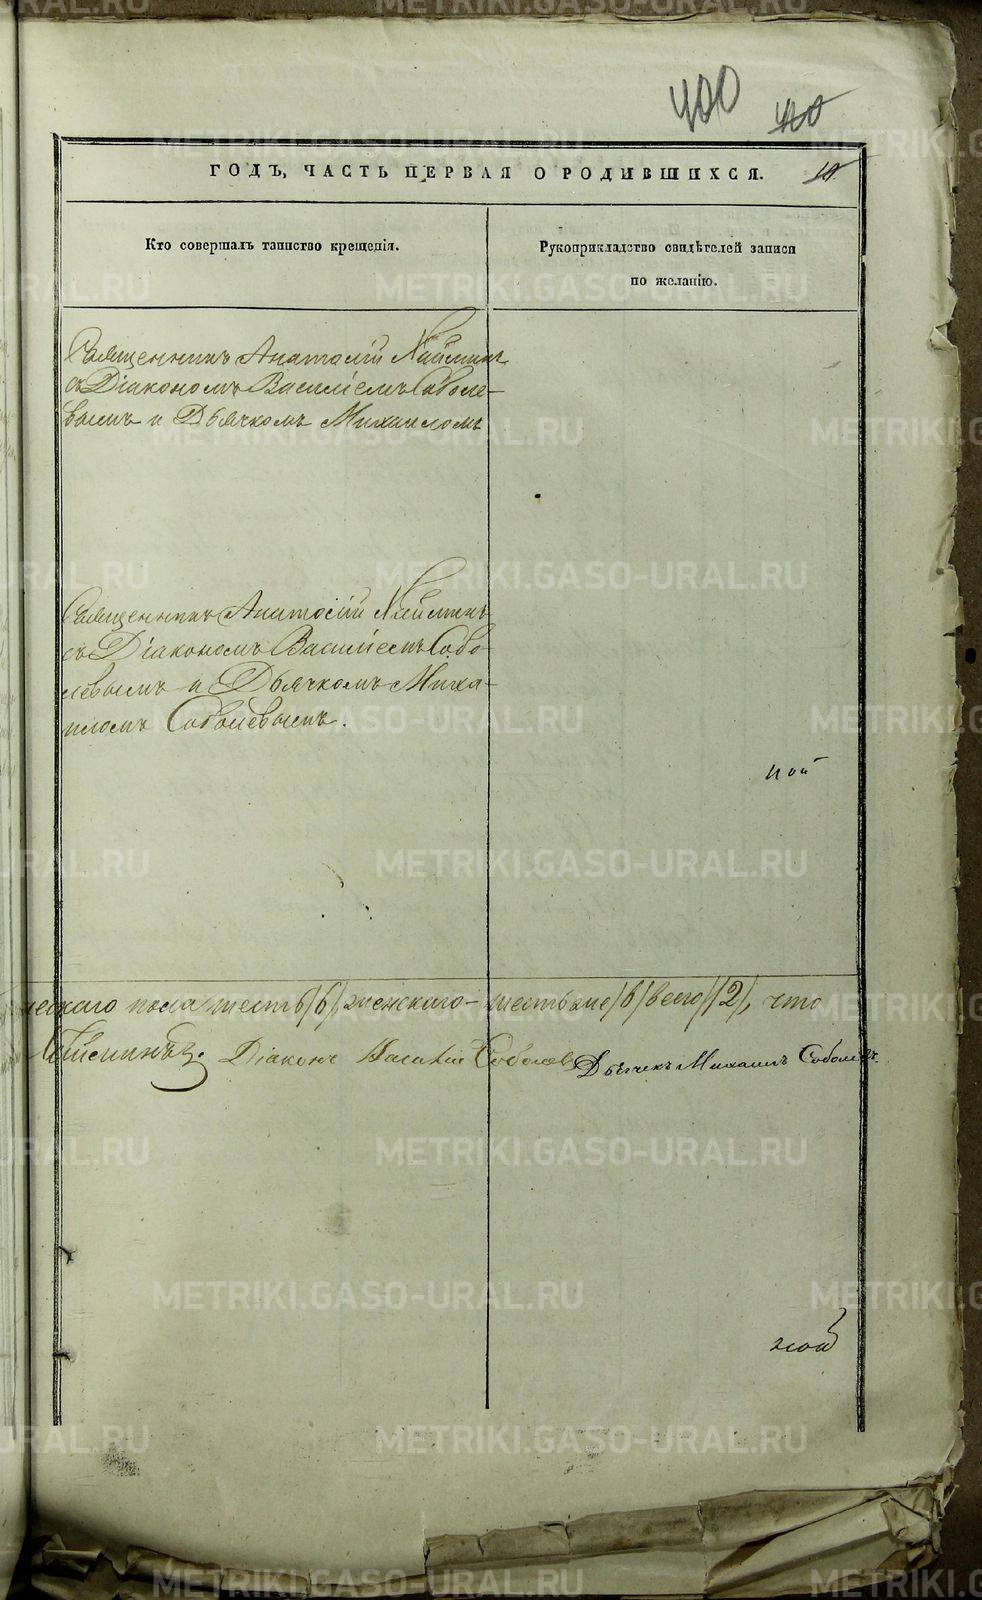 400
ГОДЪ, ЧАСТЬ ПЕРВАЯ О РОДИВШИХСЯ.
Кто совершалъ таинство крещенія.
Рукоприкладство свидѣтелей записи
по желанію.
Священникъ Анатолій
съ Діакономъ Василіемъ Соболе-
вымъ и Дьячкомъ Михаиломъ
Священникъ Анатолій
съ Діакономъ Василіемъ Собо-
левымъ и Дьячкомъ Миха-
иломъ Соболевымъ.
ной
ческаго пола шесть /6/, женскаго – шесть же /6/ всего /12/, что
Діаконъ Василій Соболевъ Дьячекъ Михаилъ Соболевъ.
METRIKI.GASO-URAL.RU